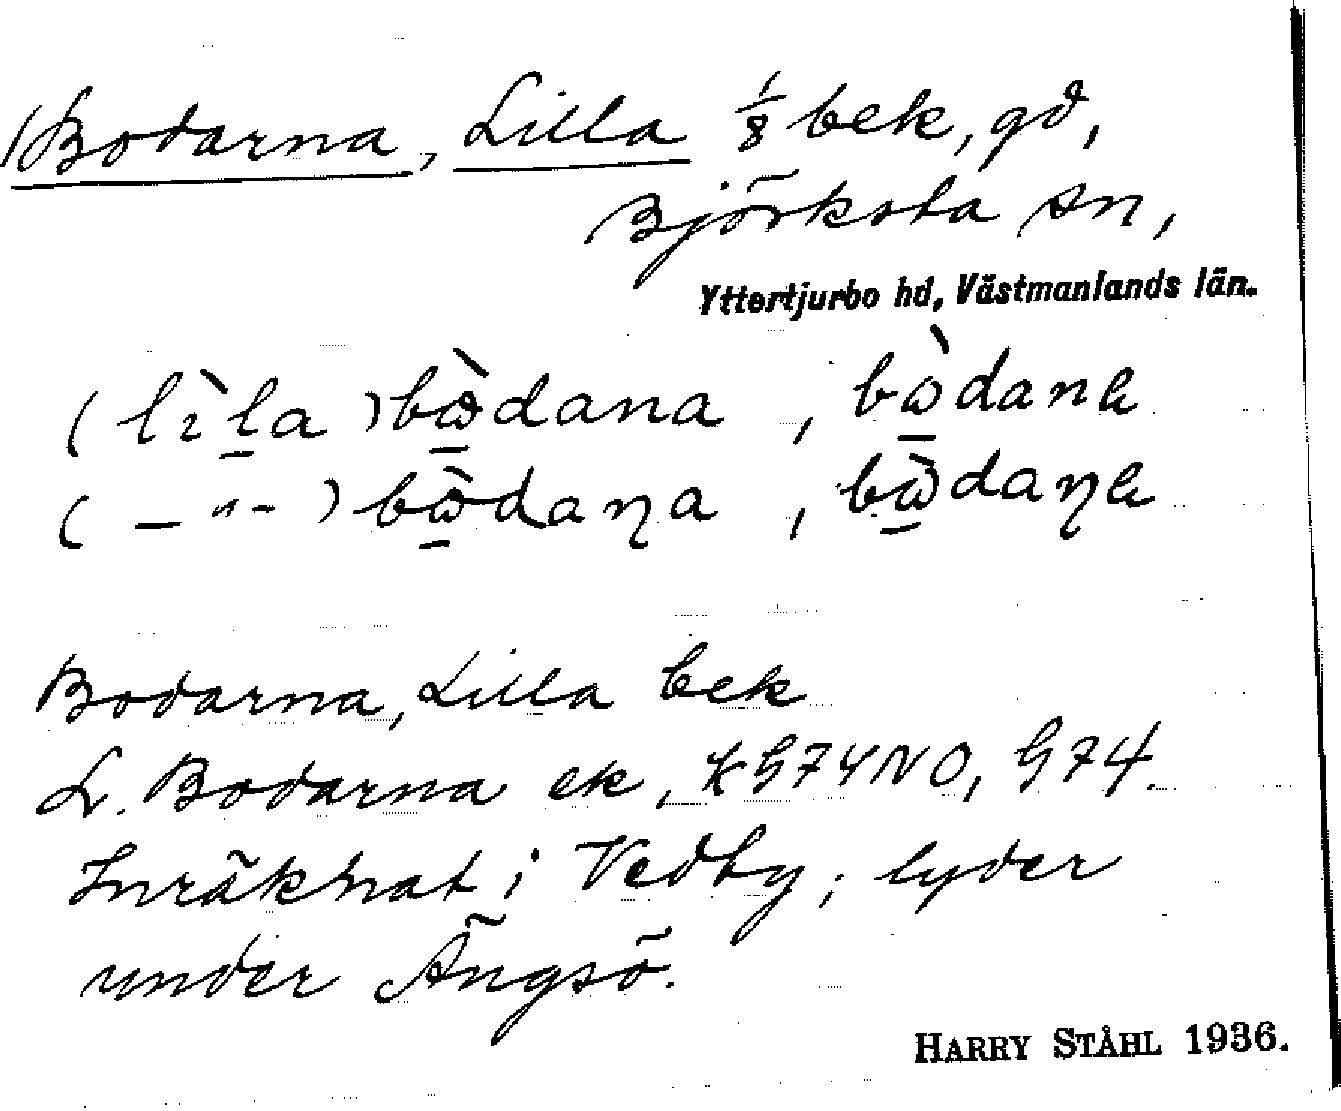 Bodarna, Lilla 1/8 bek, gd,
Björksta sn,
Yttertjurbo hd, Västmanlands län.
(lìl̠a) bὼ̠dana, bὼ̠danα
(–"–) bὼ̠daɳa, bὼ̠daɳα
Bodarna, Lilla bek
L. Bodarna ek, KG74NO, G74.
Inräknat i Vedby; lyder
under Ängsö.
HARRY STÅHL 1936.